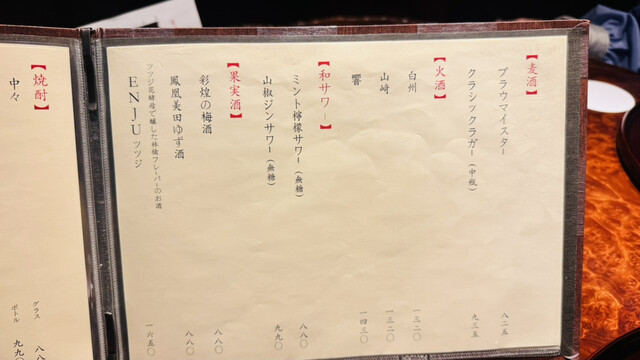 【麦酒】
ブラウマイスター 八二五
クラシックラガー（中瓶） 九三五
【火酒】
白州 一三二〇
山崎 一三二〇
響 一四三〇
【和サワー】
ミント檸檬サワー（無糖） 八八〇
山椒ジンサワー（無糖） 九九〇
【果実酒】
彩煌の梅酒 八八〇
鳳凰美田ゆず酒 八八〇
ツツジ花酵母で醸した林檎フレーバーのお酒
ENJUツツジ 一六五〇
【焼酎】
中々
グラス 八八
ボトル 九九〇